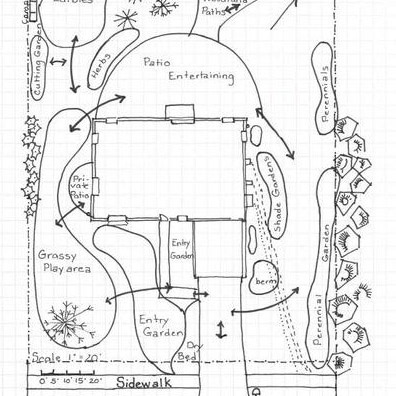 Paths
Cutting Garden
Herbs
Patio
Entertaining
Perennials
Pri-
vate
Patio
Shade Gardens
Entry
Garden
Grassy
Play area
berm
Perennial Garden
Entry
Garden
Dry
Bed
Scale 1" = 20'
0' 5' 10' 15' 20'
Sidewalk